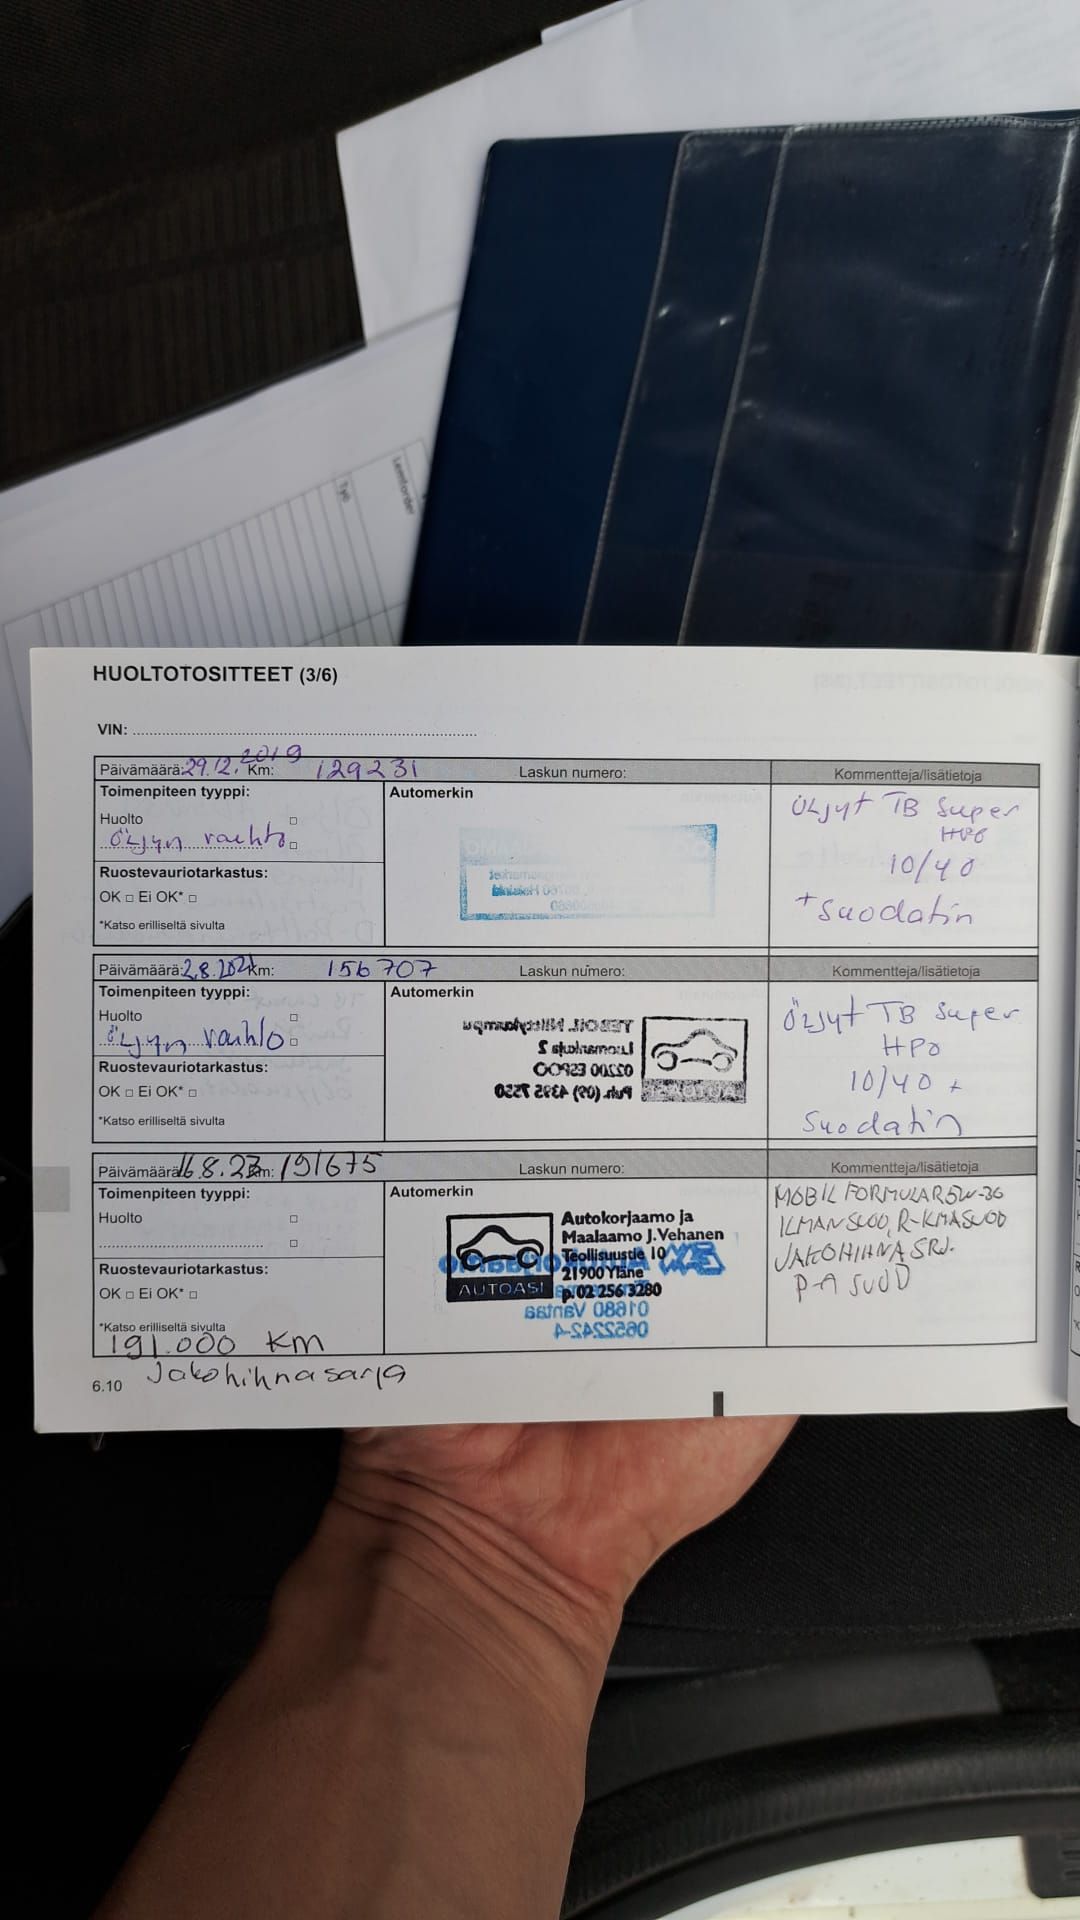 Lemforder
Työ
HUOLTOTOSITTEET (3/6)
VIN:
Päivämäärä: 29.12. 2019 Km: 129231 Laskun numero: Kommentteja/lisätietoja
Toimenpiteen tyyppi: Automerkin
Huolto
Öljyn vaihto
Ruostevauriotarkastus:
OK □ Ei OK* □
*Katso erilliseltä sivulta
ÖLJyt TB Super
HPO
10/40
+ Suodatin
Päivämäärä: 2.8.2021 Km: 156707 Laskun numero: Kommentteja/lisätietoja
Toimenpiteen tyyppi: Automerkin
Huolto
Öljyn vaihto
Ruostevauriotarkastus:
OK □ Ei OK* □
*Katso erilliseltä sivulta
Luomankuja 2
02200 ESPOO
Puh. (09) 4395 7550
AUTOASI
ÖLJyt TB Super
HPO
10/40 +
Suodatin
Päivämäärä 16.8.23 Km: 191675 Laskun numero: Kommentteja/lisätietoja
Toimenpiteen tyyppi: Automerkin
Huolto
Ruostevauriotarkastus:
OK □ Ei OK* □
*Katso erilliseltä sivulta
Autokorjaamo ja
Maalaamo J.Vehanen
Teollisuustie 10
21900 Yläne
p. 02 256 3280
AUTOASI
Autokorjaamo
01680 Vantaa
0652242-4
MOBIL FORMULAR 5W-30
ILMANSUOD, R-KMASUOD
JAKOHIHNA SRJ.
P-A SUOD
191.000 KM
Jakohihnasarja
6.10